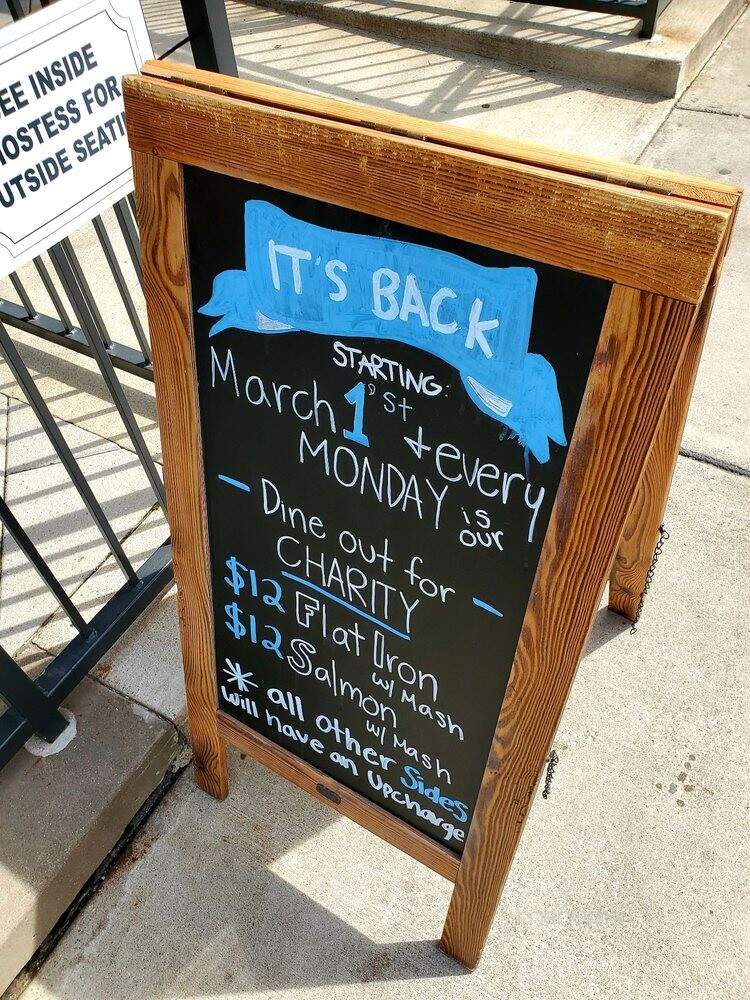 EE INSIDE
OSTESS FOR
UTSIDE SEATI
IT'S BACK
STARTING:
March 1'st
+ every
MONDAY is
our
Dine out for
CHARITY
$12 Flat Iron
w/ Mash
$12 Salmon
w/ Mash
* all other Sides
will have an Upcharge